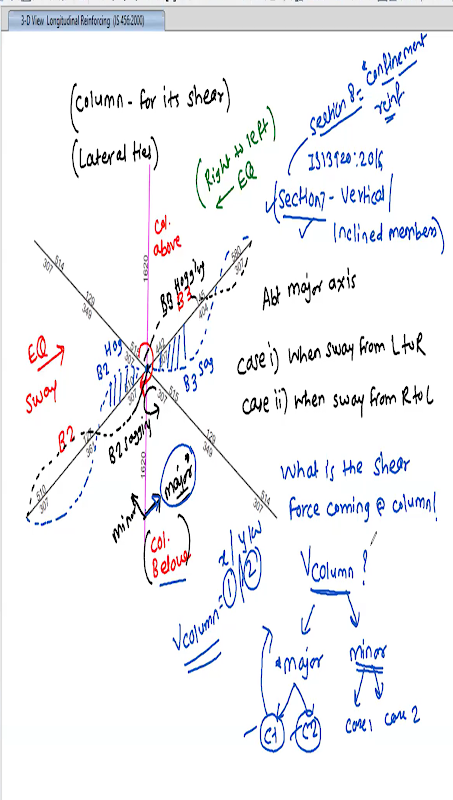 3-D View Longitudinal Reinforcing (IS 456:2000)
(Column - for its shear)
(Lateral ties)
Section 8 = "Confinement
reinf
IS13920:2016
(Section 7 - Vertical/
Inclined members)
(Right to left)
EQ
Col.
above
1620
B3 Hogging
B3
Abt major axis
Case i) When sway from L to R
Case ii) When sway from R to L
EQ
Sway
Hog
B2
B3 sag
B2
B2 sagging
1620
minor
major
(Col.
Below)
514
307
129
349
514
580
307
404
440
515
307
361
510
307
129
349
514
307
What is the shear
force coming @ column!
x / y / w
Vcolumn = 1 / 2
Vcolumn ?
major
minor
C1
C2
Case 1
Case 2